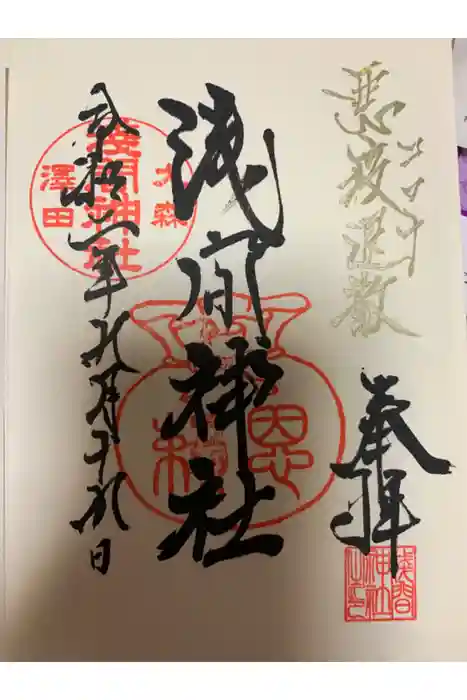 悪疫退散
コロナ
奉拝
浅間神社之印
浅間神社
大森
浅間神社
澤田
令和二年九月十九日